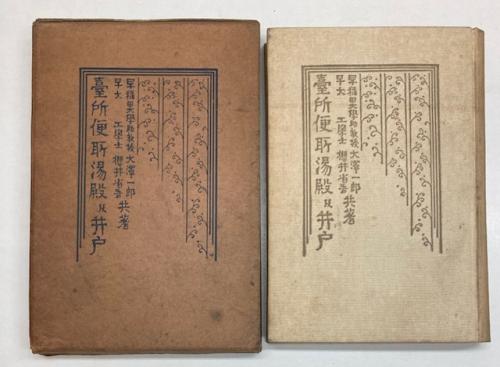 早稲田大學助教授 大澤一郎
早大 工學士 櫻井省吾
共著
臺所便所湯殿及井戸
早稲田大學助教授 大澤一郎
早大 工學士 櫻井省吾
共著
臺所便所湯殿及井戸